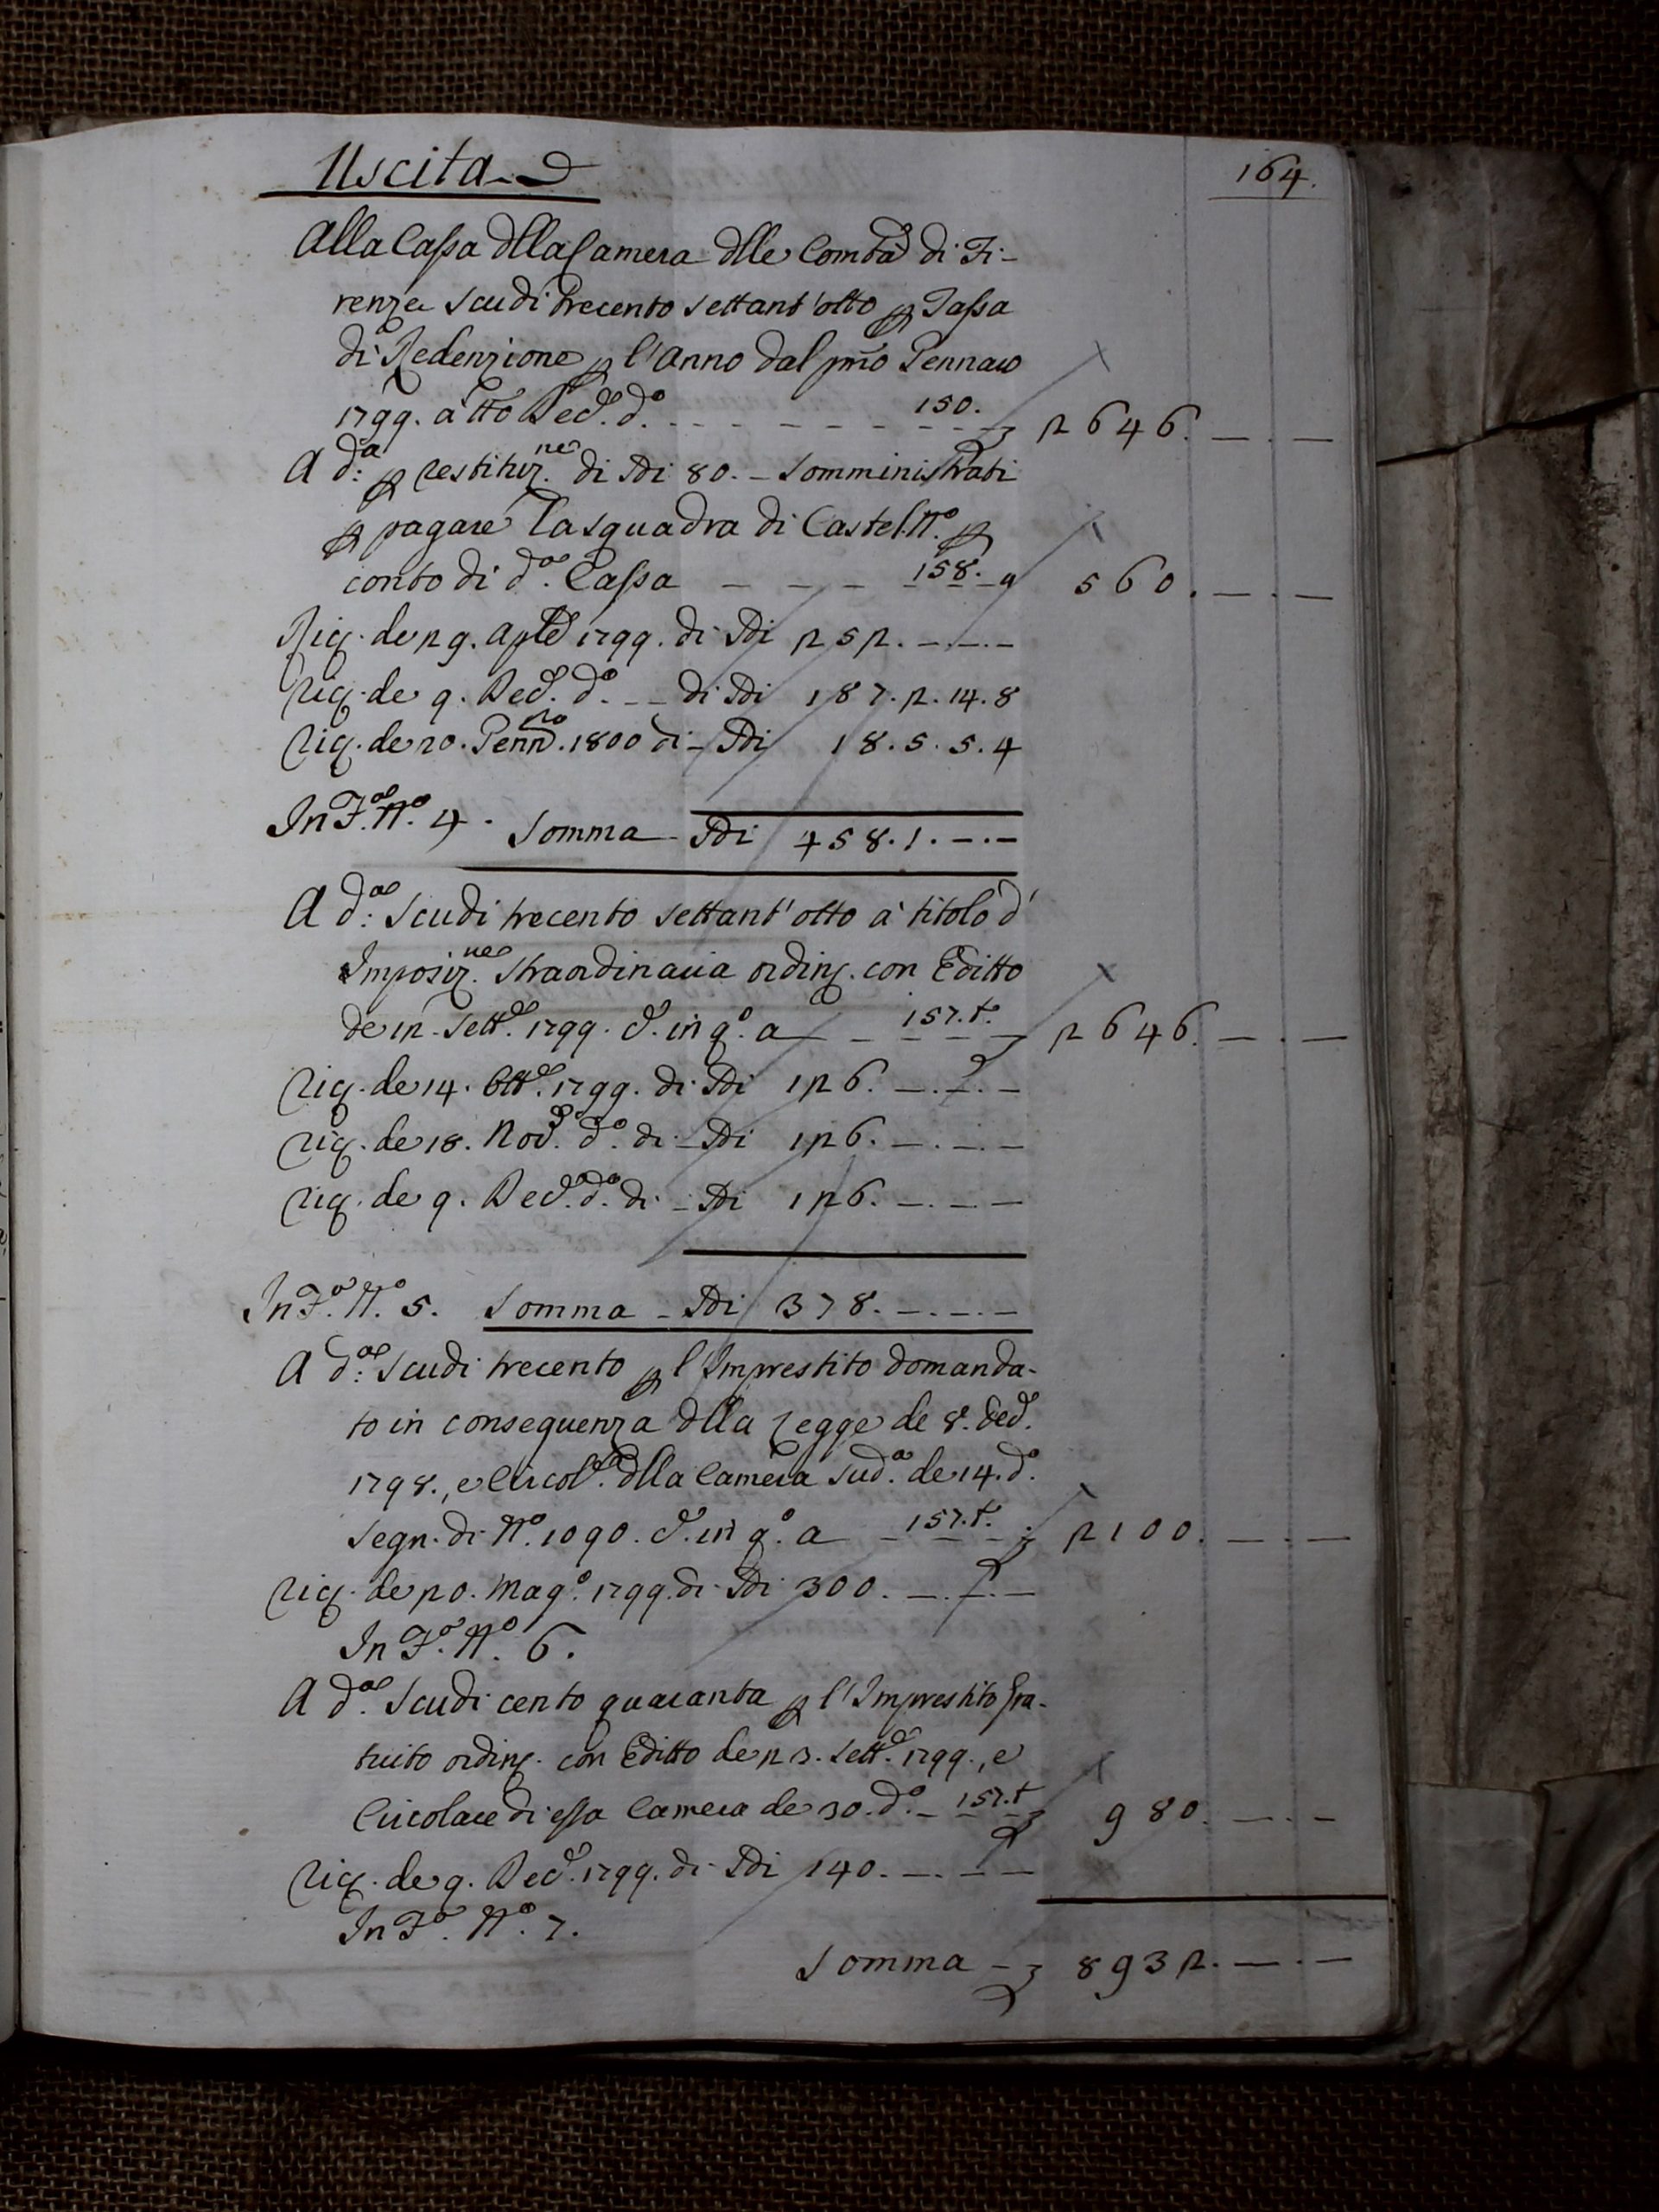 Uscita
164.
Alla Cassa dlla Camera dlle Comtà di Fi-
renze Scudi trecento settant'otto p Tassa
di Redenzione p l'Anno dal pmo Gennaio
1799. a tto Dece. do. 150. 2646. —.—
A da: p restituzne di Sdi 80. – somministrati
p pagare la squadra di Castel. No. p
conto di da. Cassa — — — 158. 560. —.—
Ric. de 29. Aple 1799. di Sdi 252. —.—.—
Ric. de 9. Dece. do. — di Sdi 187. 2. 14. 8
Ric. de 20. Gennro. 1800 di Sdi 18. 5. 5. 4
In Fa. No. 4. Somma Sdi 458. 1. —.—
A da: Scudi trecento settant'otto a titolo d'
Imposizne. straordinaria ordin. con Editto
de 12. Sette. 1799. e. in qo. a — 157. t. 2646. —.—
Ric. de 14. Otte. 1799. di Sdi 126. —.—.—
Ric. de 18. Nove. do. di Sdi 126. —.—.—
Ric. de 9. Dece. do. di Sdi 126. —.—.—
In Fa. No. 5. Somma – Sdi 378. —.—.—
A da: Scudi trecento p l'Imprestito domanda-
to in conseguenza dlla Legge de 8. Dece.
1798., e Circolre. dlla Camera suda. de 14. do.
segn. di No. 1090. e. in qo. a — 157. t. 2100. —.—
Ric. de 20. Mago. 1799. di Sdi 300. —.—.—
In Fa. No. 6.
A da. Scudi cento quaranta p l'Imprestito Gra-
tuito ordin. con Editto de 23. Sette. 1799., e
Circolare di essa Camera de 30. do. – 157. t 980. —.—
Ric. de 9. Dece. 1799. di Sdi 140. —.—.—
In Fa. No. 7.
Somma – 8932. —.—